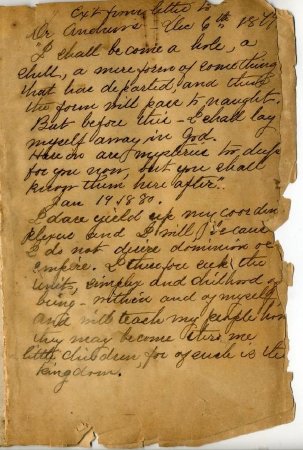 Ext from letter to
Dr Andrews Dec 6th 18
"I shall become a hole, a
shell, a mere form of something
that has departed and then
the form will pass to naught.
But before this - I shall lay
myself away in God.
Herein are mysteries too deep
for you now, but you shall
know them here after."
Jan 19 1880.
I dare yield up my
and I will, because
I do not desire dominion or
empire. I therefore seek the
unit, simple and childhood of
being - within and of myself
and will teach my people how
they may become like me
little children, for of such is the
kingdom.